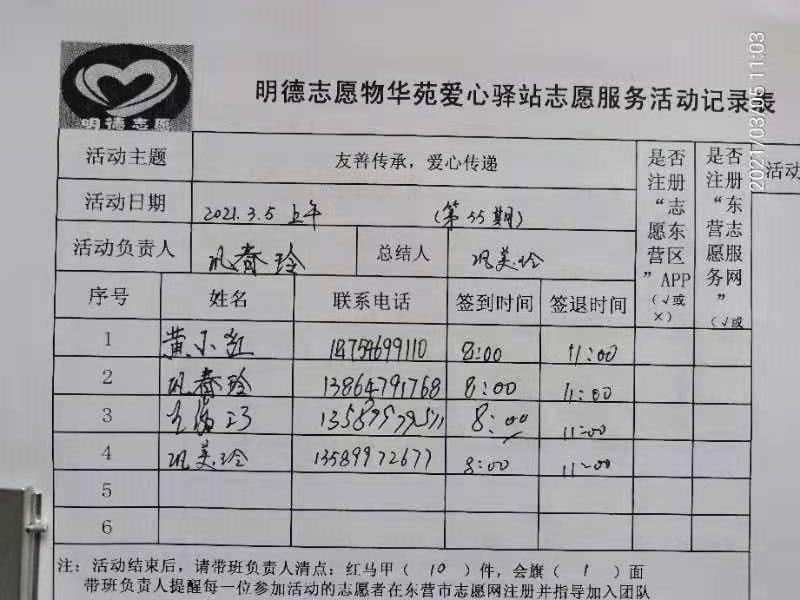 明德志愿
明德志愿物华苑爱心驿站志愿服务活动记录表
2021/03/05 11:03
活动主题 友善传承，爱心传递
活动日期 2021.3.5 上午 (第35期)
活动负责人 巩春玲 总结人 巩美玲
是否注册“志愿东营区”APP（√或×）
是否注册“东营志愿服务网”（√或
活动
序号 姓名 联系电话 签到时间 签退时间
1 黄小红 18754699110 8:00 11:00
2 巩春玲 13864791768 8:00 11:00
3 8:00 11:00
4 巩美玲 13589972677 8:00 11:00
5
6
注：活动结束后，请带班负责人清点：红马甲（ 10 ）件，会旗（ 1 ）面
带班负责人提醒每一位参加活动的志愿者在东营市志愿网注册并指导加入团队